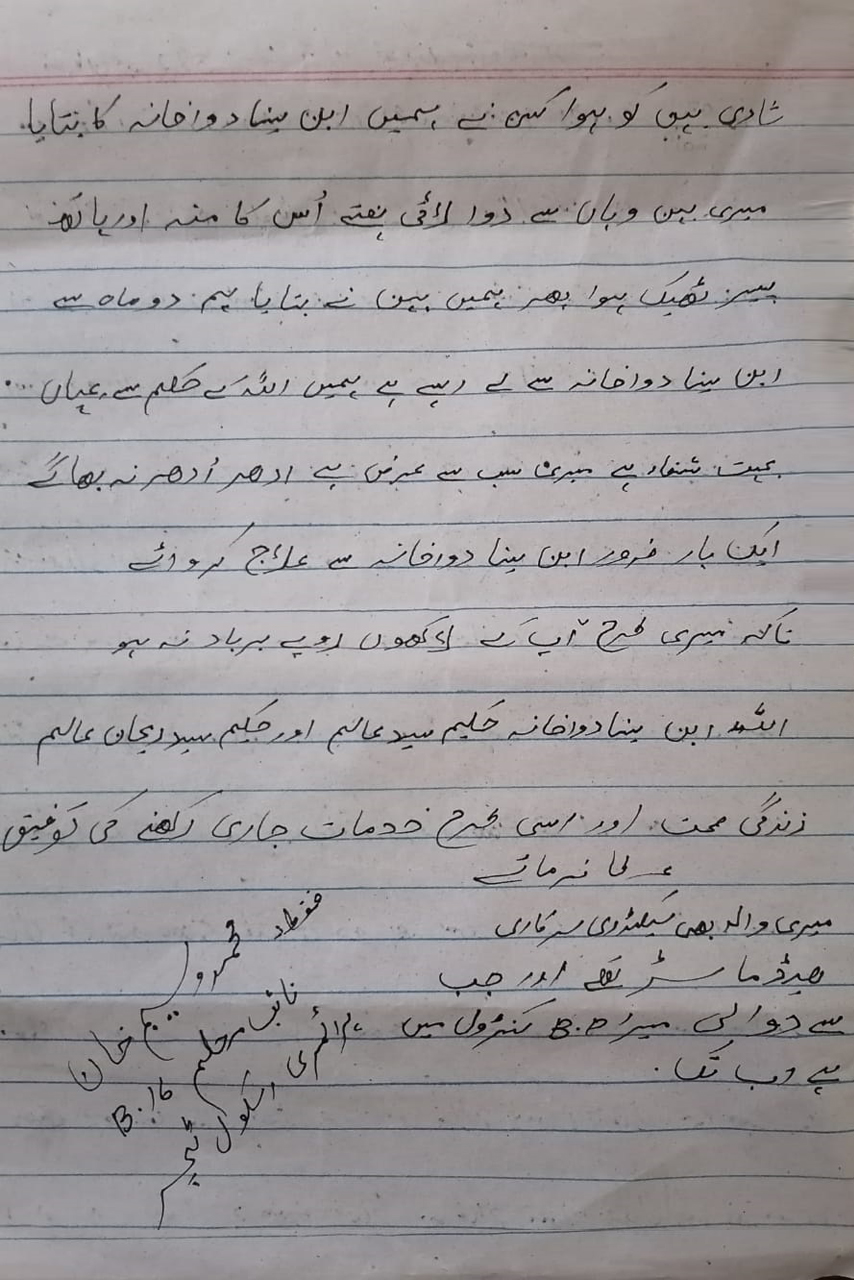 شادی بہن کو ہوا کسی نے ہمیں ابن سینا دواخانہ کا بتایا۔
میری بہن وہاں سے دوا لائی ہفتے اُس کا منہ اور ہاتھ
پیر ٹھیک ہوا پھر ہمیں بہن نے بتایا ہم دو ماہ سے
ابن سینا دواخانہ سے لے رہے ہے ہمیں اللہ کے حکم سے یہاں ...
بہت شفاء ہے میری سب سے عرض ہے ادھر اُدھر نہ بھاگے
ایک بار ضرور ابن سینا دواخانہ سے علاج کروائے
تاکہ میری طرح آپ کے لاکھوں روپے برباد نہ ہو
اللہ ابن سینا دواخانہ حکیم سید عالم اور حکیم سید ریحان عالم
زندگی صحت اور اسی طرح خدمات جاری رکھنے کی توفیق
عطا فرمائے
میری والد بھی سیکنڈری سرکاری
ہیڈ ماسٹر تھے اور جب
سے دوا لی میرا B.P کنٹرول میں
ہے اب تک۔
فقط
محمد وسیم خان
نائب معلم B.16
پرائمری اسکول ٹیچر